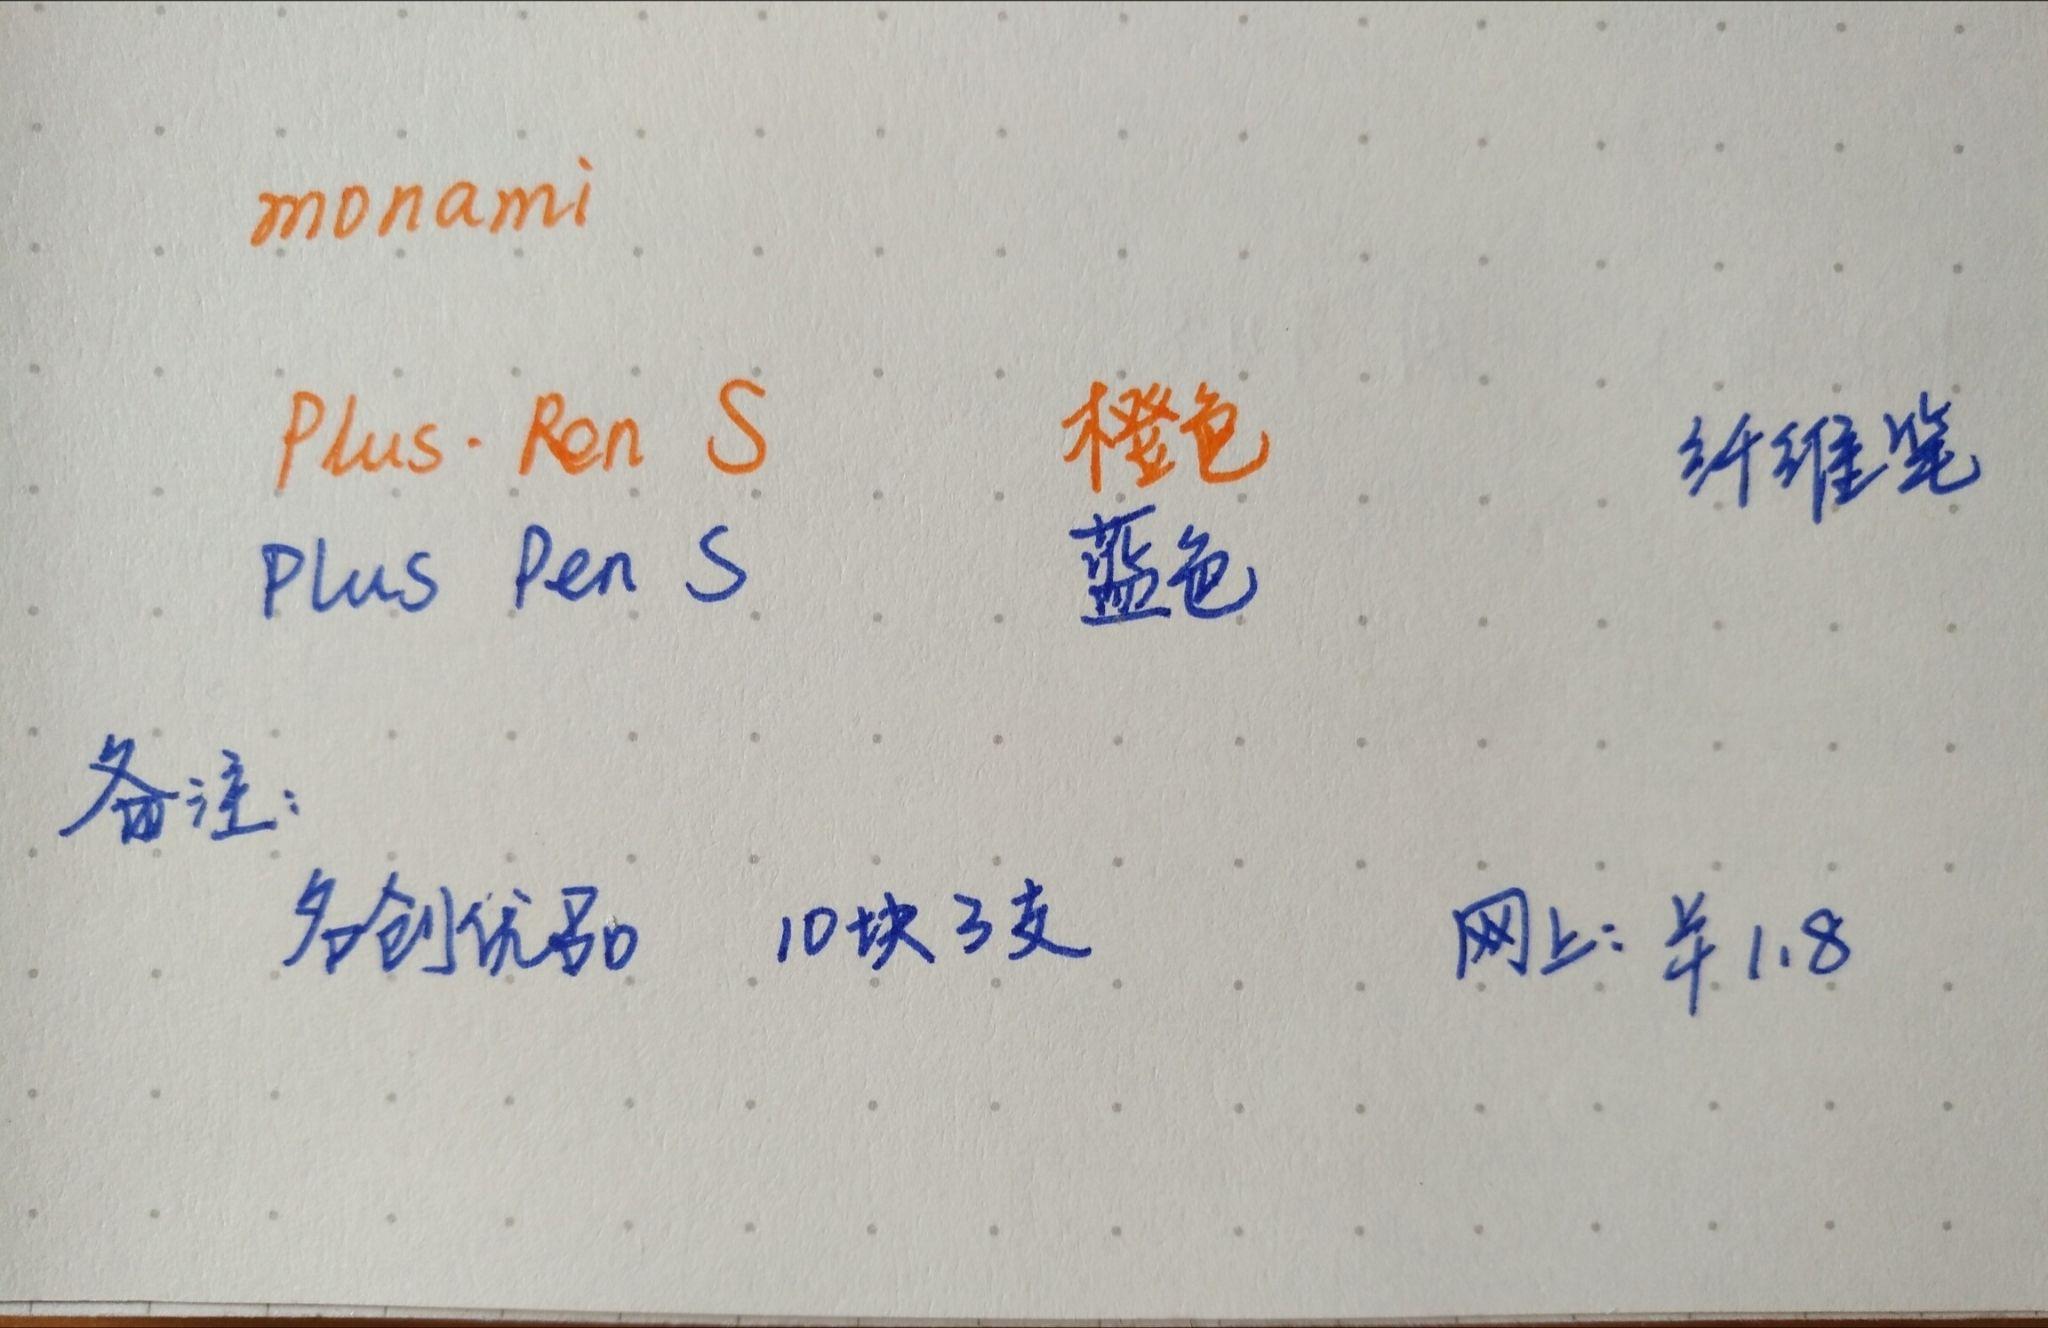 monami
Plus·Pen S 橙色 纤维笔
Plus Pen S 蓝色
备注:
名创优品 10块3支 网上: 单1.8